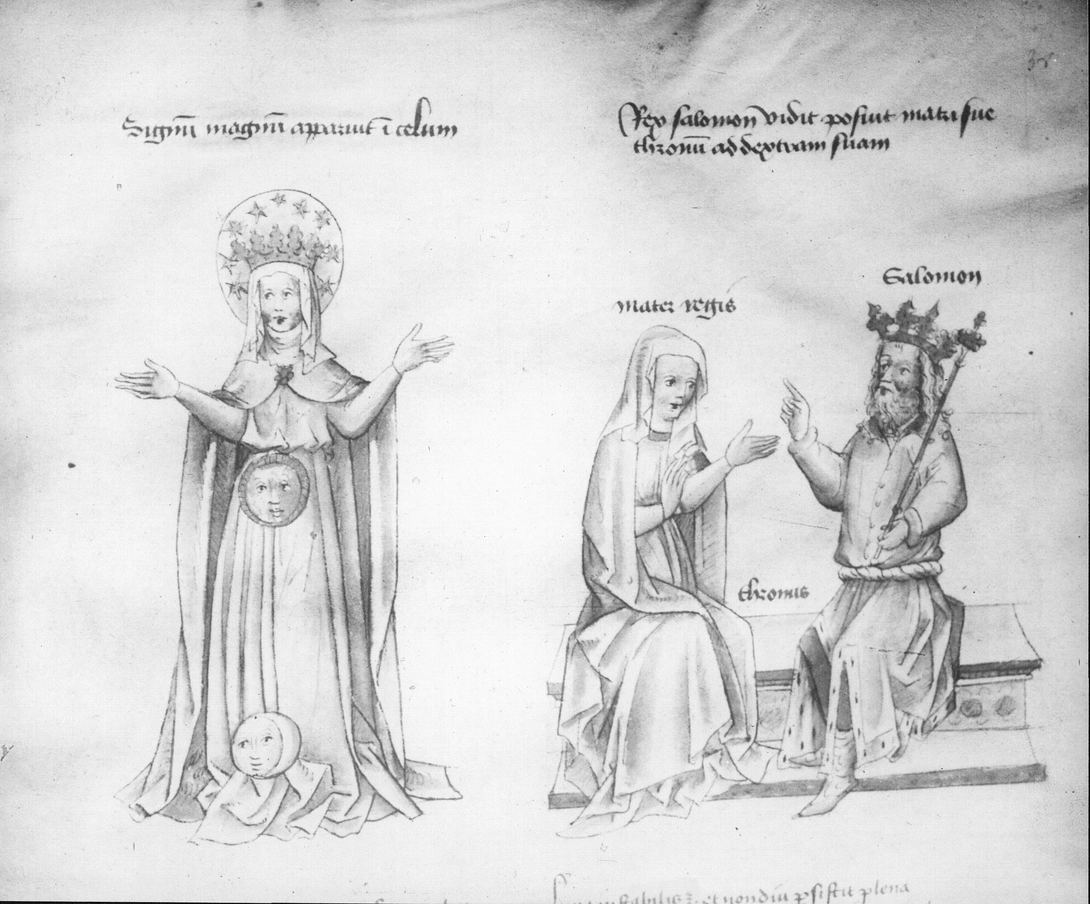 Signū magnū apparuit ī celum
Rex salomon vidit posuit matri sue
thronū ad dextram suam
Salomon
mater regis
thronus
et nondū psistit plena